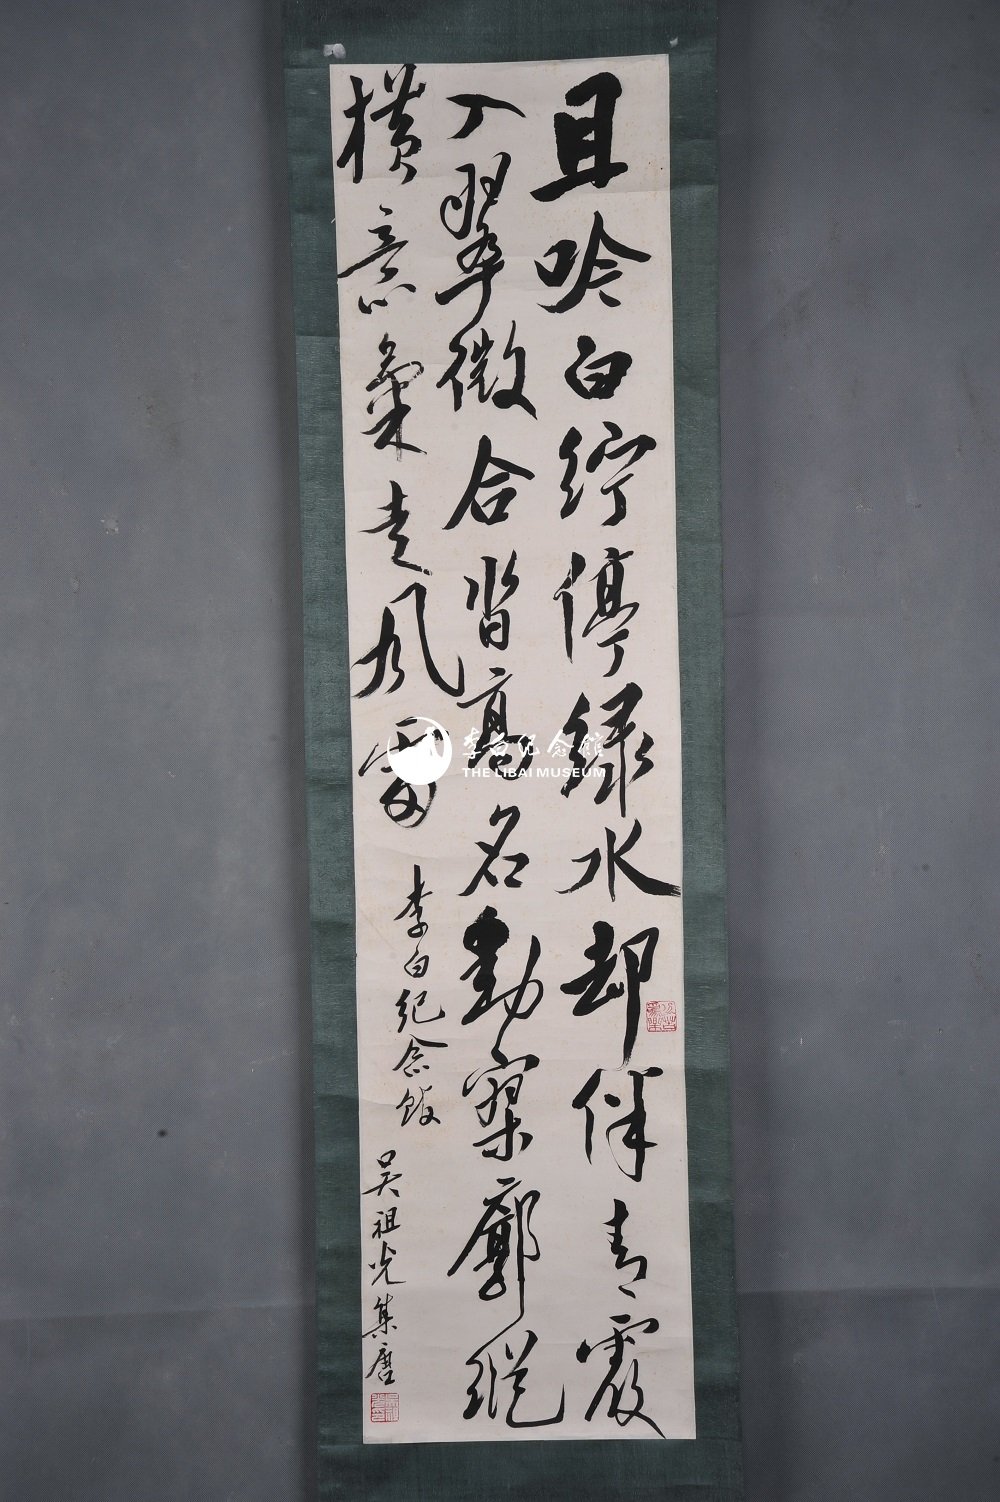 且吟白紵停緑水却伴青霞
入翠微合沓高名動寥廓縱
橫意氣走風雷
李白紀念館
吴祖光集唐
李白纪念館
THE LIBAI MUSEUM